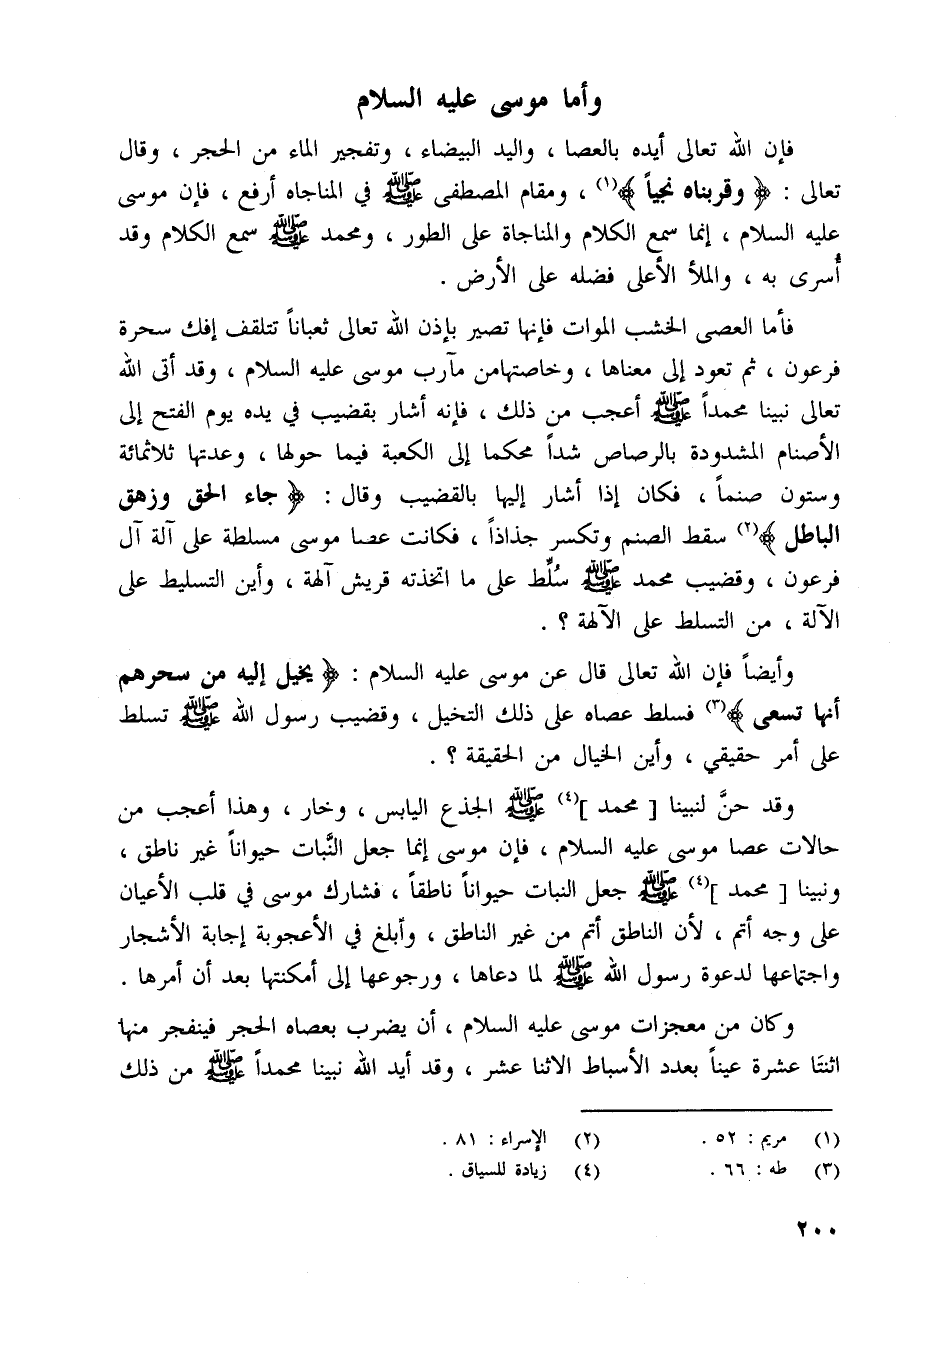 وأما موسى عليه السلام
فإن الله تعالى أيده بالعصا ، واليد البيضاء ، وتفجير الماء من الحجر ، وقال
تعالى : ﴿ وقربناه نجياً ﴾(١) ، ومقام المصطفى ﷺ في المناجاه أرفع ، فإن موسى
عليه السلام ، إنما سمع الكلام والمناجاة على الطور ، ومحمد ﷺ سمع الكلام وقد
أُسرى به ، والملأ الأعلى فضله على الأرض .
فأما العصى الخشب الموات فإنها تصير بإذن الله تعالى ثعباناً تتلقف إفك سحرة
فرعون ، ثم تعود إلى معناها ، وخاصتهامن مآرب موسى عليه السلام ، وقد أتى الله
تعالى نبينا محمداً ﷺ أعجب من ذلك ، فإنه أشار بقضيب في يده يوم الفتح إلى
الأصنام المشدودة بالرصاص شداً محكما إلى الكعبة فيما حولها ، وعدتها ثلاثمائة
وستون صنماً ، فكان إذا أشار إليها بالقضيب وقال : ﴿ جاء الحق وزهق
الباطل ﴾(٢) سقط الصنم وتكسر جذاذاً ، فكانت عصا موسى مسلطة على آلة آل
فرعون ، وقضيب محمد ﷺ سُلِّط على ما اتخذته قريش آلهة ، وأين التسليط على
الآلة ، من التسلط على الآلهة ؟ .
وأيضاً فإن الله تعالى قال عن موسى عليه السلام : ﴿ يخيل إليه من سحرهم
أنها تسعى ﴾(٣) فسلط عصاه على ذلك التخيل ، وقضيب رسول الله ﷺ تسلط
على أمر حقيقي ، وأين الخيال من الحقيقة ؟ .
وقد حنَّ لنبينا [ محمد ](٤) ﷺ الجذع اليابس ، وخار ، وهذا أعجب من
حالات عصا موسى عليه السلام ، فإن موسى إنما جعل النَّبات حيواناً غير ناطق ،
ونبينا [ محمد ](٤) ﷺ جعل النبات حيواناً ناطقاً ، فشارك موسى في قلب الأعيان
على وجه أتم ، لأن الناطق أتم من غير الناطق ، وأبلغ في الأعجوبة إجابة الأشجار
واجتماعها لدعوة رسول الله ﷺ لما دعاها ، ورجوعها إلى أمكنتها بعد أن أمرها .
وكان من معجزات موسى عليه السلام ، أن يضرب بعصاه الحجر فينفجر منها
اثنتَا عشرة عيناً بعدد الأسباط الاثنا عشر ، وقد أيد الله نبينا محمداً ﷺ من ذلك
(١) مريم : ٥٢ . (٢) الإسراء : ٨١ .
(٣) طه : ٦٦ . (٤) زيادة للسياق .
٢٠٠